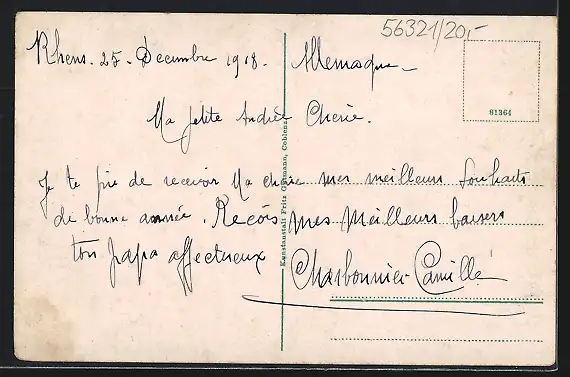 56321/20,-
Rhens. 25. Décembre 1918. Allemagne_
Ma petite Andrée Cherie.
Je te prie de recevoir Ma chère mes meilleurs Souhaits
de bonne année. Reçois mes Meilleurs baisers
ton papa affectueux Charbonnier Camille
81364
Kunstanstalt Fritz Gutmann, Coblenz